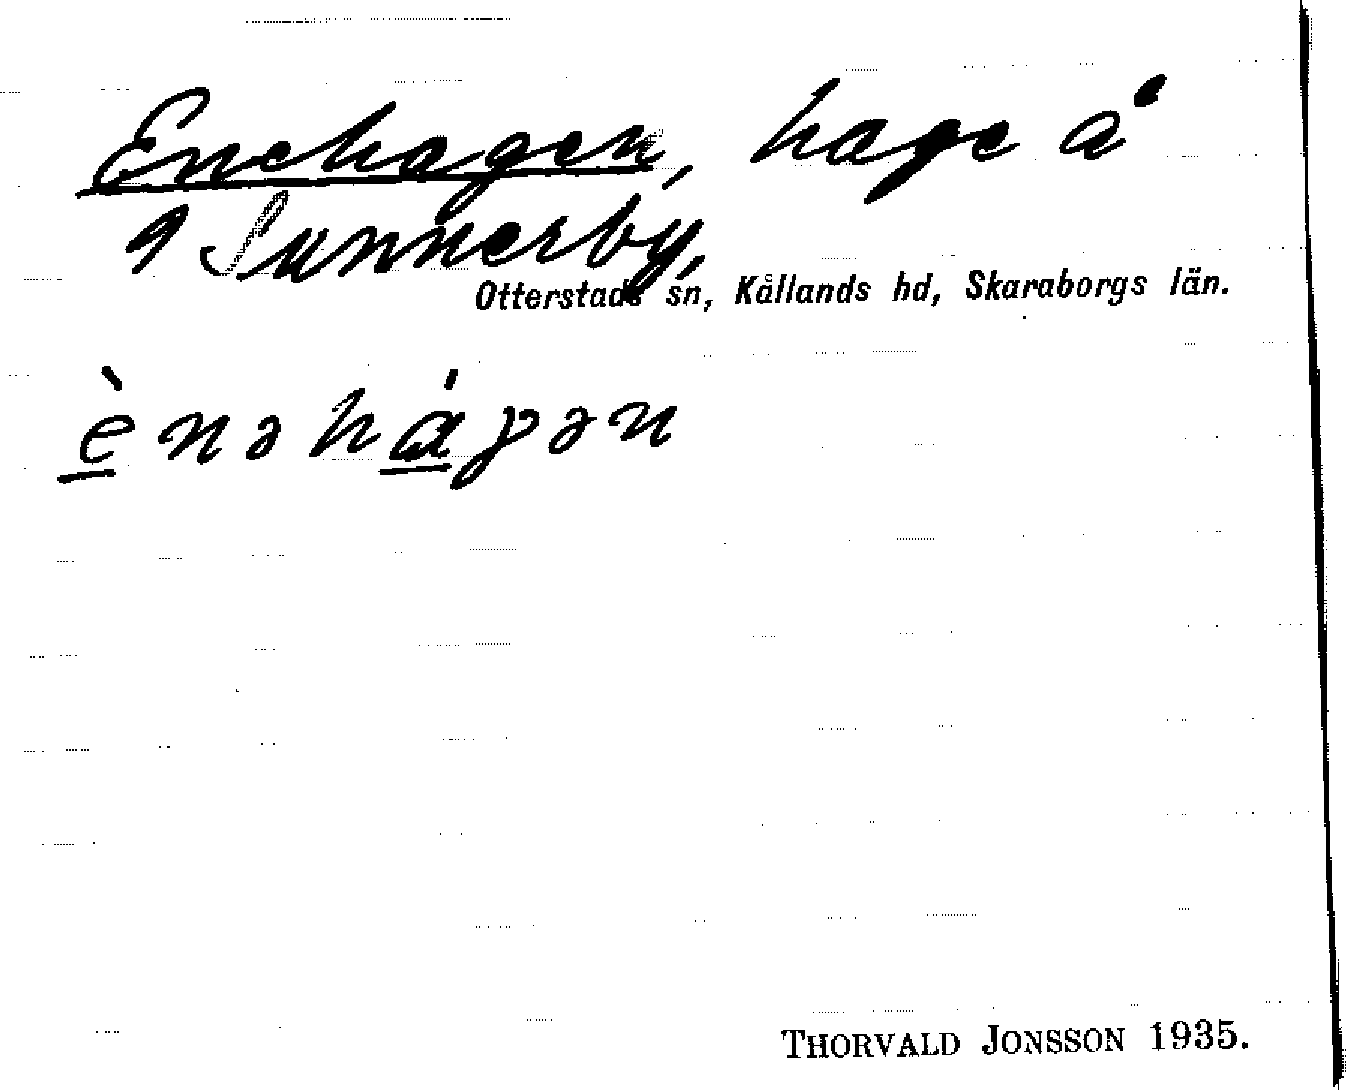 Enehagen, hage å
9 Sunnerby,
Otterstads sn, Kållands hd, Skaraborgs län.
ènəháǥən
THORVALD JONSSON 1935.